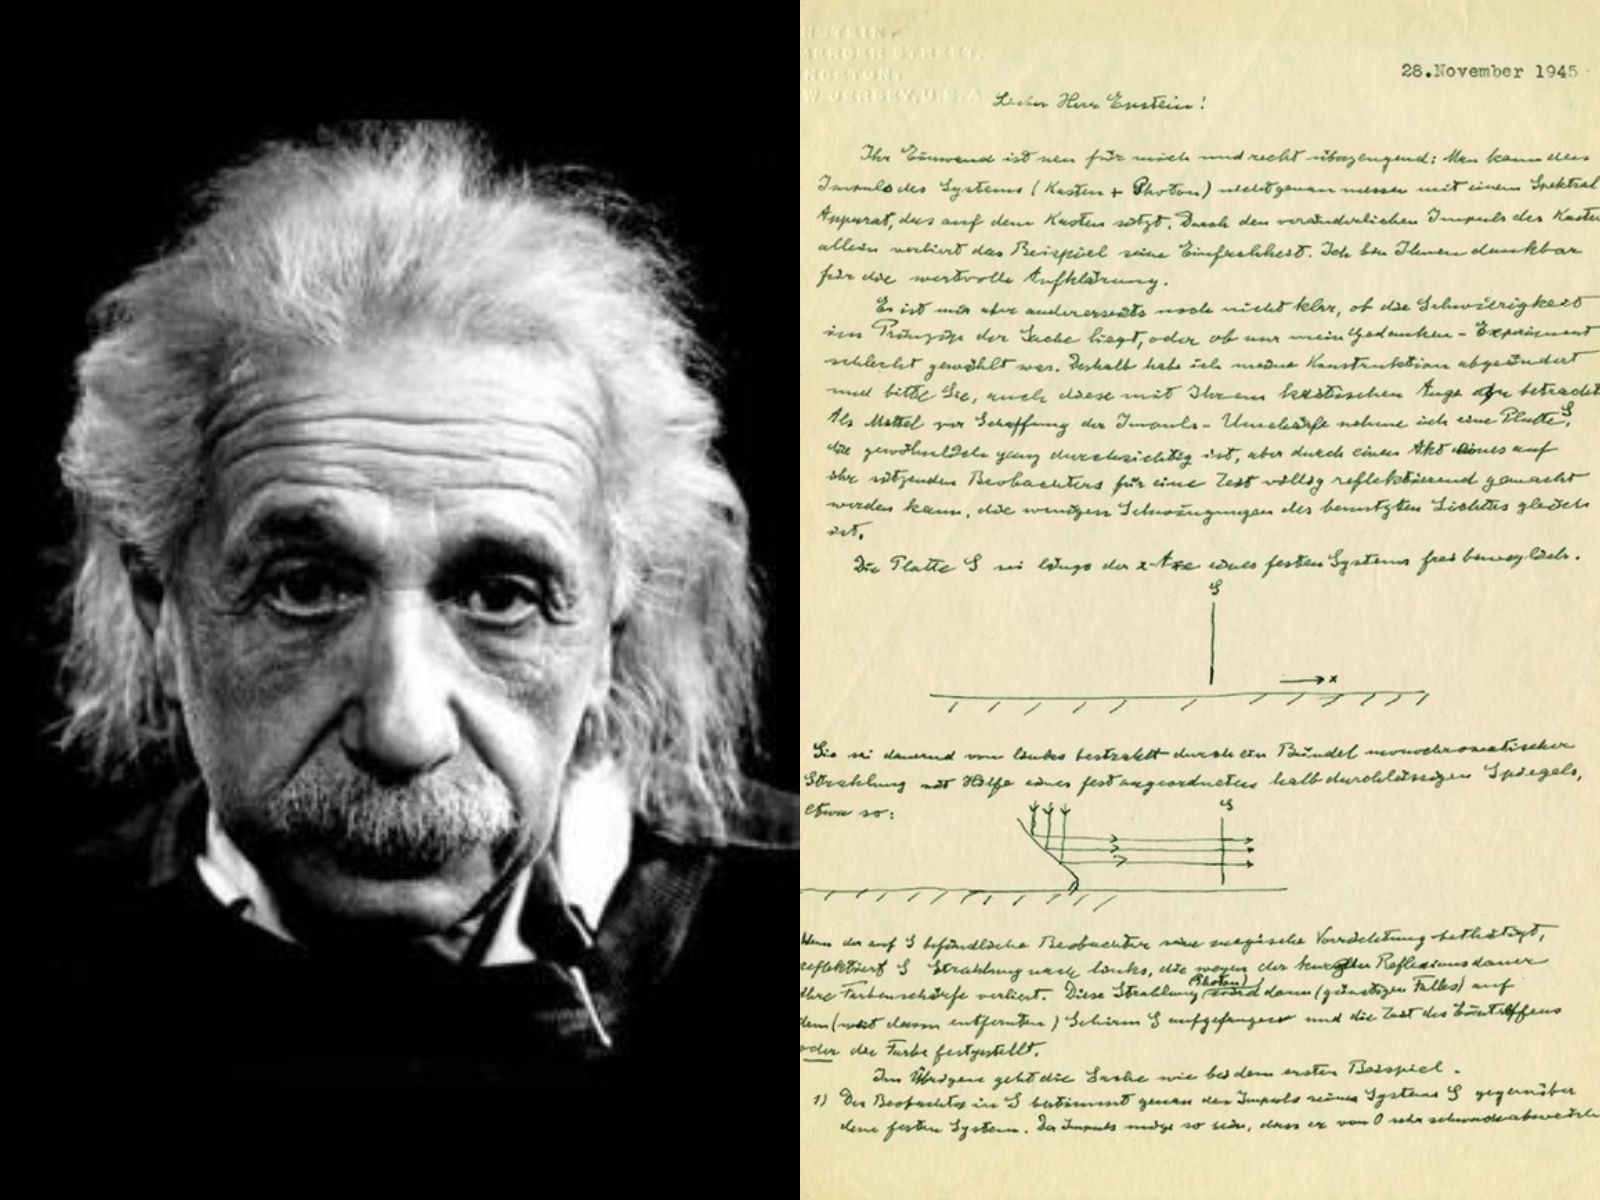 NSTEIN
MERCER STREET,
NCETON,
W JERSEY, U.S.A.
28.November 1945
Lieber Herr Epstein!
Ihr Einwand ist neu für mich und recht überzeugend: Man kann den
Impuls des Systems (Kasten + Photon) nicht genau messen mit einem Spektral
Apparat, das auf dem Kasten sitzt. Durch den veränderlichen Impuls des Kasten
allein verliert das Beispiel seine Einfachheit. Ich bin Ihnen dankbar
für die wertvolle Aufklärung.
Es ist mir aber andererseits noch nicht klar, ob die Schwierigkeit
im Prinzip der Sache liegt, oder ob nur mein Gedanken-Experiment
schlecht gewählt war. Deshalb habe ich meine Konstruktion abgeändert
und bitte Sie, auch diese mit Ihrem kritischen Auge zu betracht
Als Mittel zur Schaffung der Impuls-Unschärfe nehme ich eine Platte S,
die gewöhnlich ganz durchsichtig ist, aber durch einen Akt eines auf
ihr sitzenden Beobachters für eine Zeit völlig reflektierend gemacht
werden kann, die wenigen Schwingungen des benutzten Lichtes gleich
ist.
Die Platte S sei längs der x-Axe eines festen Systems frei beweglich.
S
x
Sie sei dauernd von links bestrahlt durch ein Bündel monochromatischer
Strahlung mit Hilfe eines fest angeordneten halbdurchlässigen Spiegels,
etwa so:
S
Wenn der auf S befindliche Beobachter seine magische Vorrichtung bethätigt,
reflektiert S Strahlung nach links, die wegen der kurzen Reflexionsdauer
ihre Farbenschärfe verliert. Diese Strahlung (Photon) wird dann (günstigen Falles) auf
dem (weit davon entfernten) Schirm S aufgefangen und die Zeit des Eintreffens
oder die Farbe festgestellt.
Im Übrigen geht die Sache wie bei dem ersten Beispiel.
1) Der Beobachter in S bestimmt genau den Impuls seines Systems S gegenüber
dem festen System. Der Impuls möge so sein, dass er von 0 sehr schwach